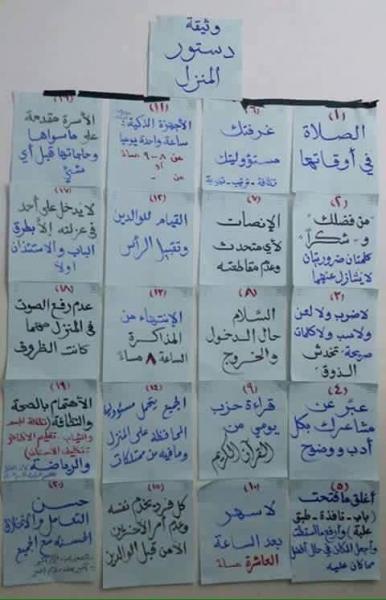 وثيقة
دستور
المنزل
(١)
الصلاة
في أوقاتها
(٢)
"من فضلك"
و "شكراً"
كلمتان ضروريتان
لا يتنازل عنهما
(٣)
لا ضرب ولا لعن
ولا سب ولا كلمات
صريحة تخدش
الذوق
(٤)
عبّر عن
مشاعرك بكل
أدب ووضوح
(٥)
أغلق ما فتحت
(باب - نافذة - طبق
علبة) وارفع ما استخدمت
واجعل المكان في حال أفضل
مما كان عليه
(٦)
غرفتك
مسؤوليتك
نظافة - ترتيب - تهوية
(٧)
الإنصات
لأي متحدث
وعدم مقاطعته
(٨)
السلام
حال الدخول
والخروج
(٩)
قراءة حزب
يومي من
القرآن الكريم
(١٠)
لا سهر
بعد الساعة
العاشرة مساءً
(١١)
الأجهزة الذكية:
ساعة واحدة يوميا
من ٨ - ٩ مساءً
أو
من -
(١٢)
القيام للوالدين
وتقبيل الرأس
(١٣)
الإنتهاء من
المذاكرة
الساعة ٨ مساءً
(١٤)
الجميع يتحمل مسؤولية
المحافظة على المنزل
وما فيه من ممتلكات
(١٥)
كل فرد يخدم نفسه
وعدم أمر الآخرين
إلا من قبل الوالدين
(١٦)
الأسرة مقدمة
على ما سواها
وحاجاتها قبل أي
شيء
(١٧)
لا يدخل على أحد
في عزلته إلا بطرق
الباب والاستئذان
أولاً
(١٨)
عدم رفع الصوت
في المنزل مهما
كانت الظروف
(١٩)
الاهتمام بالصحة
والنظافة (نظافة الجسم
والثياب - تقليم الأظافر
تنظيف الأسنان)
والرياضة
(٢٠)
حسن
التعامل والأخلاق
الحسنة مع الجميع